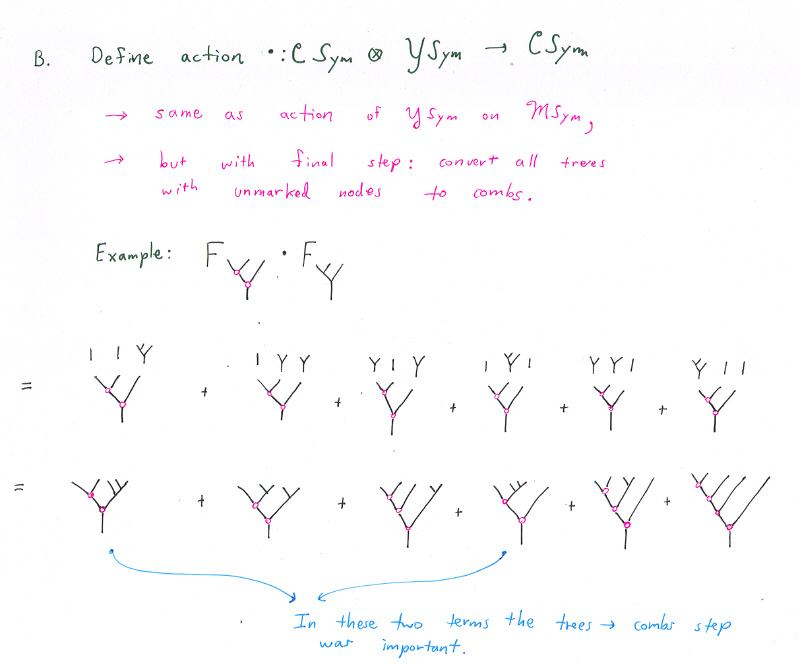 B. Define action ·: C Sym ⊗ Y Sym → C Sym
→ same as action of Y Sym on M Sym,
→ but with final step: convert all trees
with unmarked nodes to combs.
Example: F · F
= + + + + +
= + + + + +
In these two terms the trees → combs step
was important.